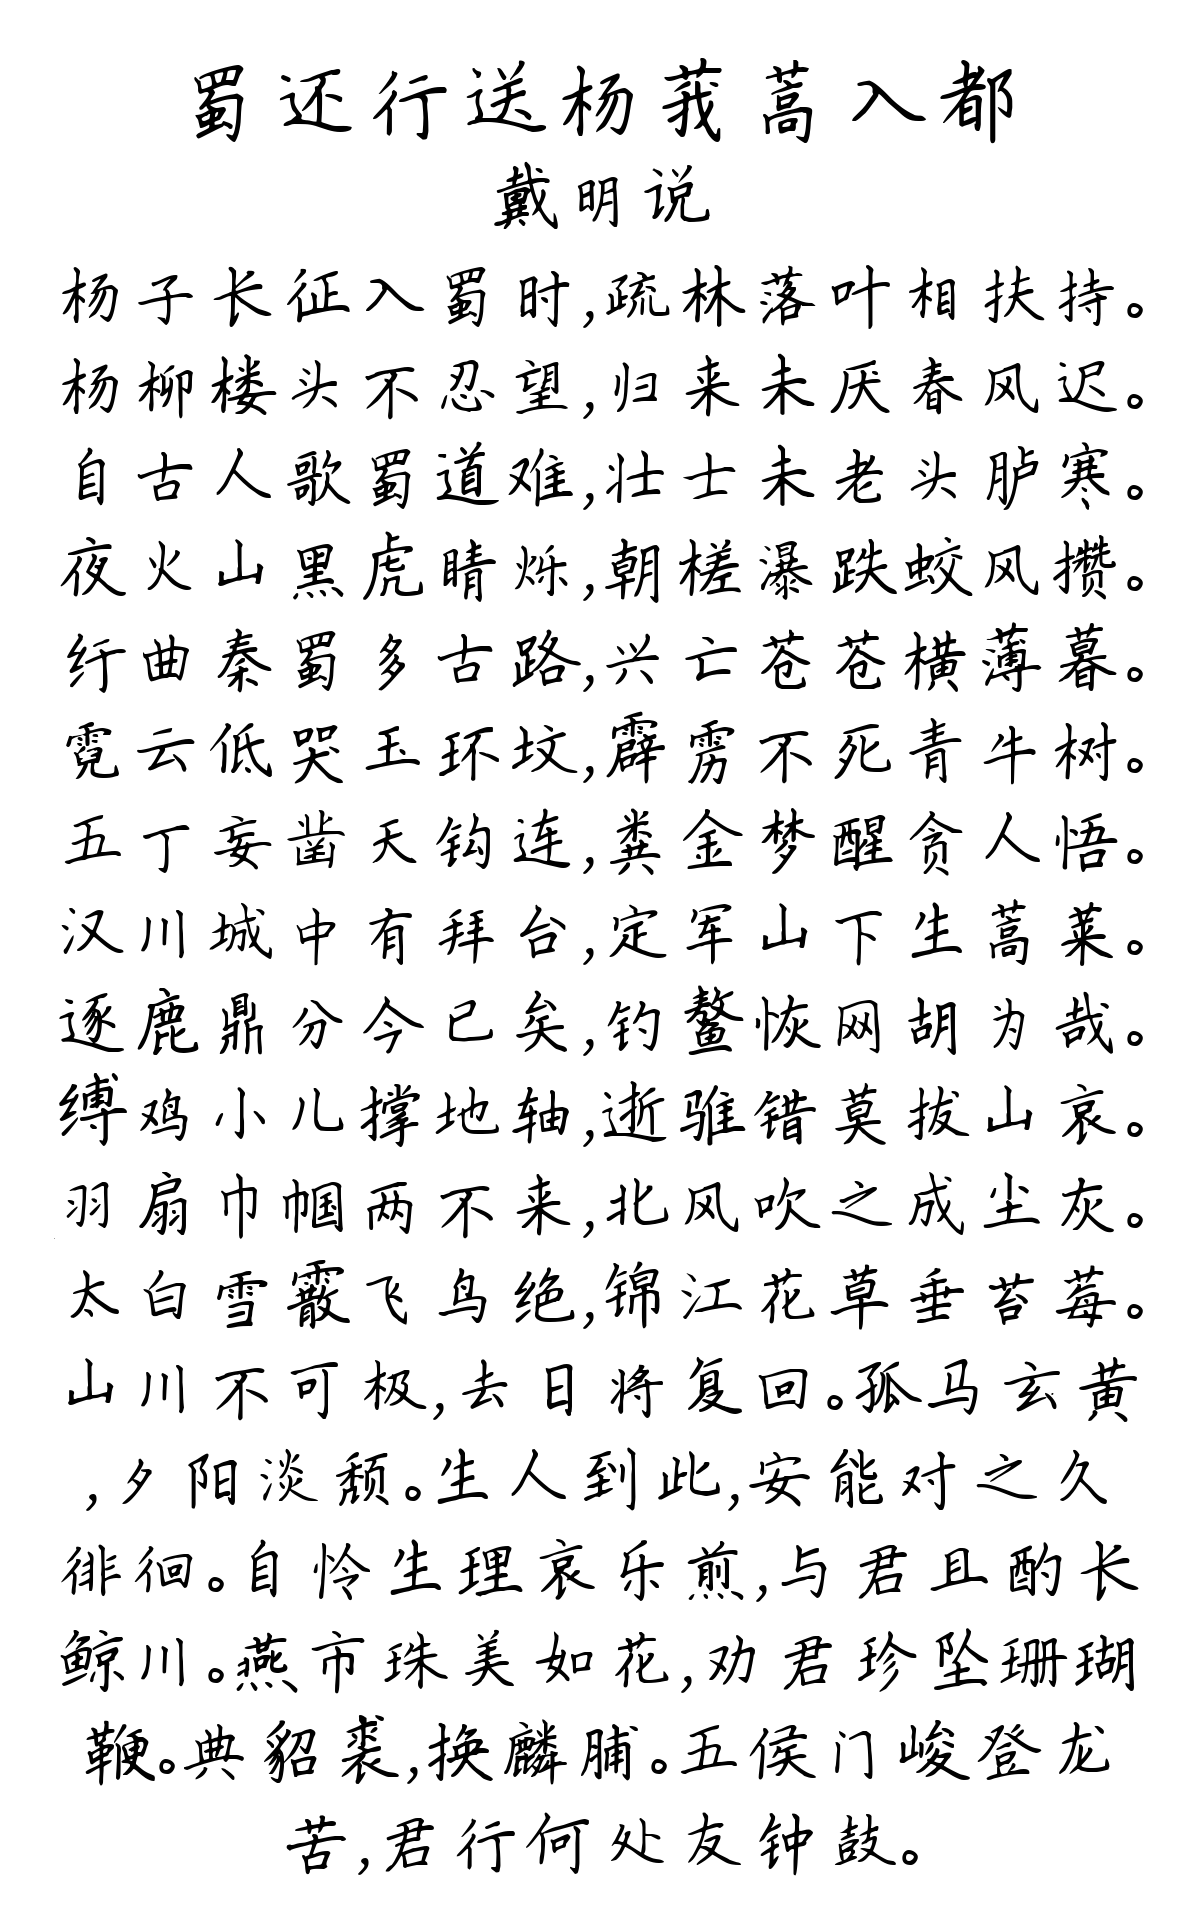 蜀还行送杨莪蒿入都
戴明说
杨子长征入蜀时,疏林落叶相扶持。
杨柳楼头不忍望,归来未厌春风迟。
自古人歌蜀道难,壮士未老头胪寒。
夜火山黑虎晴烁,朝槎瀑跌蛟风攒。
纡曲秦蜀多古路,兴亡苍苍横薄暮。
霓云低哭玉环坟,霹雳不死青牛树。
五丁妄凿天钩连,粪金梦醒贪人悟。
汉川城中有拜台,定军山下生蒿莱。
逐鹿鼎分今已矣,钓鳌恢网胡为哉。
缚鸡小儿撑地轴,逝骓错莫拔山哀。
羽扇巾帼两不来,北风吹之成尘灰。
太白雪霰飞鸟绝,锦江花草垂苔莓。
山川不可极,去日将复回。孤马玄黄
,夕阳淡颓。生人到此,安能对之久
徘徊。自怜生理哀乐煎,与君且酌长
鲸川。燕市珠美如花,劝君珍坠珊瑚
鞭。典貂裘,换麟脯。五侯门峻登龙
苦,君行何处友钟鼓。